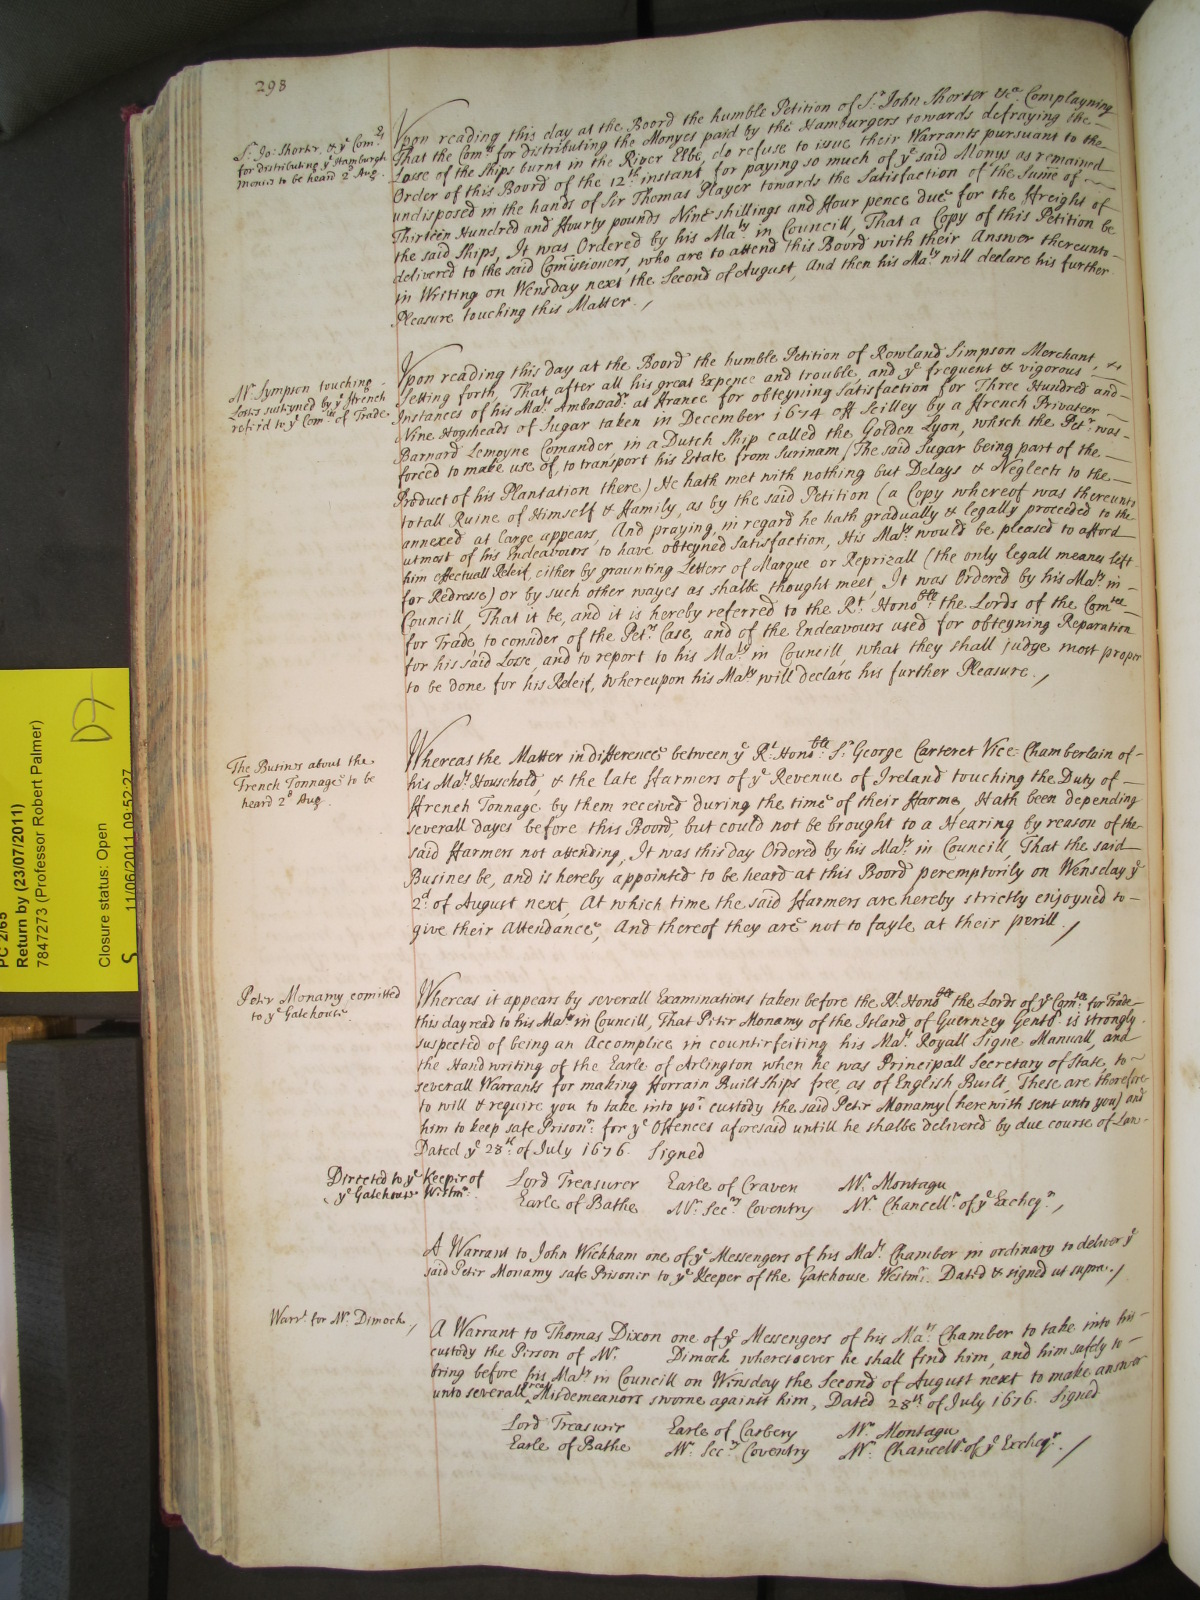 298
Sr. Jo: Shorter, & ye Comrs
for distributing ye Hamburgh
monies to be heard 2d Aug.
Vpon reading this day at the Board the humble Petition of Sr. John Shorter &ca. Complayning
That the Comrs for distributing the Monyes paid by the Hamburgers towards defraying the
Losse of the Ships burnt in the River Elbe, do refuse to issue their Warrants pursuant to the
Order of this Board of the 12th instant for paying so much of ye said Monys as remained
undisposed in the hands of Sir Thomas Player towards the Satisfaction of the Sume of
Thirteen Hundred and ffourty pounds Nine shillings and ffour pence due for the ffreight of
the said Ships, It was Ordered by his Maty in Councill, That a Copy of this Petition be
delivered to the said Comissioners, who are to attend this Board with their Answer thereunto
in Writing on Wensday next the Second of August, And then his Maty will declare his further
Pleasure touching this Matter.
Mr. Sympson touching
Losses sustyned by ye ffrench
refer'd to ye Comtee of Trade.
Vpon reading this day at the Board the humble Petition of Rowland Simpson Merchant,
Setting forth, That after all his great Expence and trouble, and ye frequent & vigorous
Instances of his Mats Ambassadr. at ffrance for obteyning Satisfaction for Three Hundred and
Nine Hogsheads of Sugar taken in December 1674 off Scilley by a ffrench Privateer
Barnard Lemoyne Comander, in a Dutch Ship called the Golden Lyon, which the Petr. was
forced to make use of, to transport his Estate from Surinam (The said Sugar being part of the
Product of his Plantation there) He hath met with nothing but Delays & Neglects to the
totall Ruine of Himself & ffamily, as by the said Petition (a Copy whereof was thereunto
annexed at large appears, And praying, in regard he hath gradually & legally proceeded to the
utmost of his Endeavours to have obteyned Satisfaction, His Maty would be pleased to afford
him effectuall Releif, either by graunting Letters of Marque or Reprizall (the only legall meanes left
for Redresse) or by such other wayes as shalbe thought meet, It was Ordered by his Maty in
Councill, That it be, and it is hereby referred to the Rt. Honoble the Lords of the Comtee
for Trade to consider of the Petrs Case, and of the Endeavours used for obteyning Reparation
for his said Losse, and to report to his Maty in Councill, what they shall judge most proper
to be done for his Releif, Whereupon his Maty will declare his further Pleasure.
The Busines about the
French Tonnage to be
heard 2d Aug.
Whereas the Matter in difference between ye Rt. Honoble Sr. George Carteret Vice-Chamberlain of
his Mats Houshold, & the late ffarmers of ye Revenue of Ireland touching the Duty of
ffrench Tonnage by them received during the time of their ffarme, Hath been depending
severall dayes before this Board, but could not be brought to a Hearing by reason of the
said ffarmers not attending, It was this day Ordered by his Maty in Councill, That the said
Busines be, and is hereby appointed to be heard at this Board peremptorily on Wensday ye
2d. of August next, At which time the said ffarmers are hereby strictly enjoyned to
give their Attendance, And thereof they are not to fayle at their perill.
Peter Monamy comitted
to ye Gatehouse
Whereas it appears by severall Examinations taken before the Rt. Honoble the Lords of ye Comtee for Trade
this day read to his Maty in Councill, That Peter Monamy of the Island of Guernzey Gent. is strongly
suspected of being an Accomplice in counterfeiting his Mats Royall Signe Manuall, and
the Handwriting of the Earle of Arlington when he was Principall Secretary of State, to
severall Warrants for making fforrain Built Ships free, as of English Built, These are therefore
to will & require you to take into yor custody the said Peter Monamy (herewith sent unto you) and
him to keep safe Prisoner for ye Offences aforesaid untill he shalbe delivered by due course of Law
Dated ye 28th of July 1676. Signed
Directed to ye Keeper of
ye Gatehouse Westmr.
Lord Treasurer Earle of Craven Mr. Montagu
Earle of Bathe Mr. Secry Coventry Mr. Chancellr. of ye Excheqr.
A Warrant to John Wickham one of ye Messengers of his Mats Chamber in ordinary to deliver ye
said Peter Monamy safe Prisoner to ye Keeper of the Gatehouse Westmr. Dated & signed ut supra.
Warrt. for Mr. Dimock
A Warrant to Thomas Dixon one of ye Messengers of his Mats Chamber to take into his
custody the Person of Mr. Dimock wheresoever he shall find him, and him safely to
bring before his Maty in Councill on Wensday the Second of August next to make answer
unto severall great Misdemeanors sworne against him, Dated 28th of July 1676. Signed
Lord Treasurer Earle of Carbery Mr. Montagu
Earle of Bathe Mr. Secry Coventry Mr. Chancellr. of ye Excheqr.
PC 2/65
Return by (23/07/2011)
7847273 (Professor Robert Palmer)
Closure status: Open
S 11/06/2011 09:52:27
D7